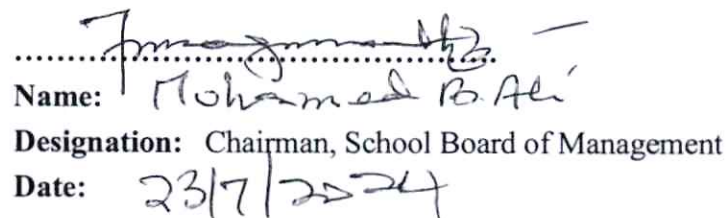 Name: Mohamed B. Ali
Designation: Chairman, School Board of Management
Date: 23/7/2024